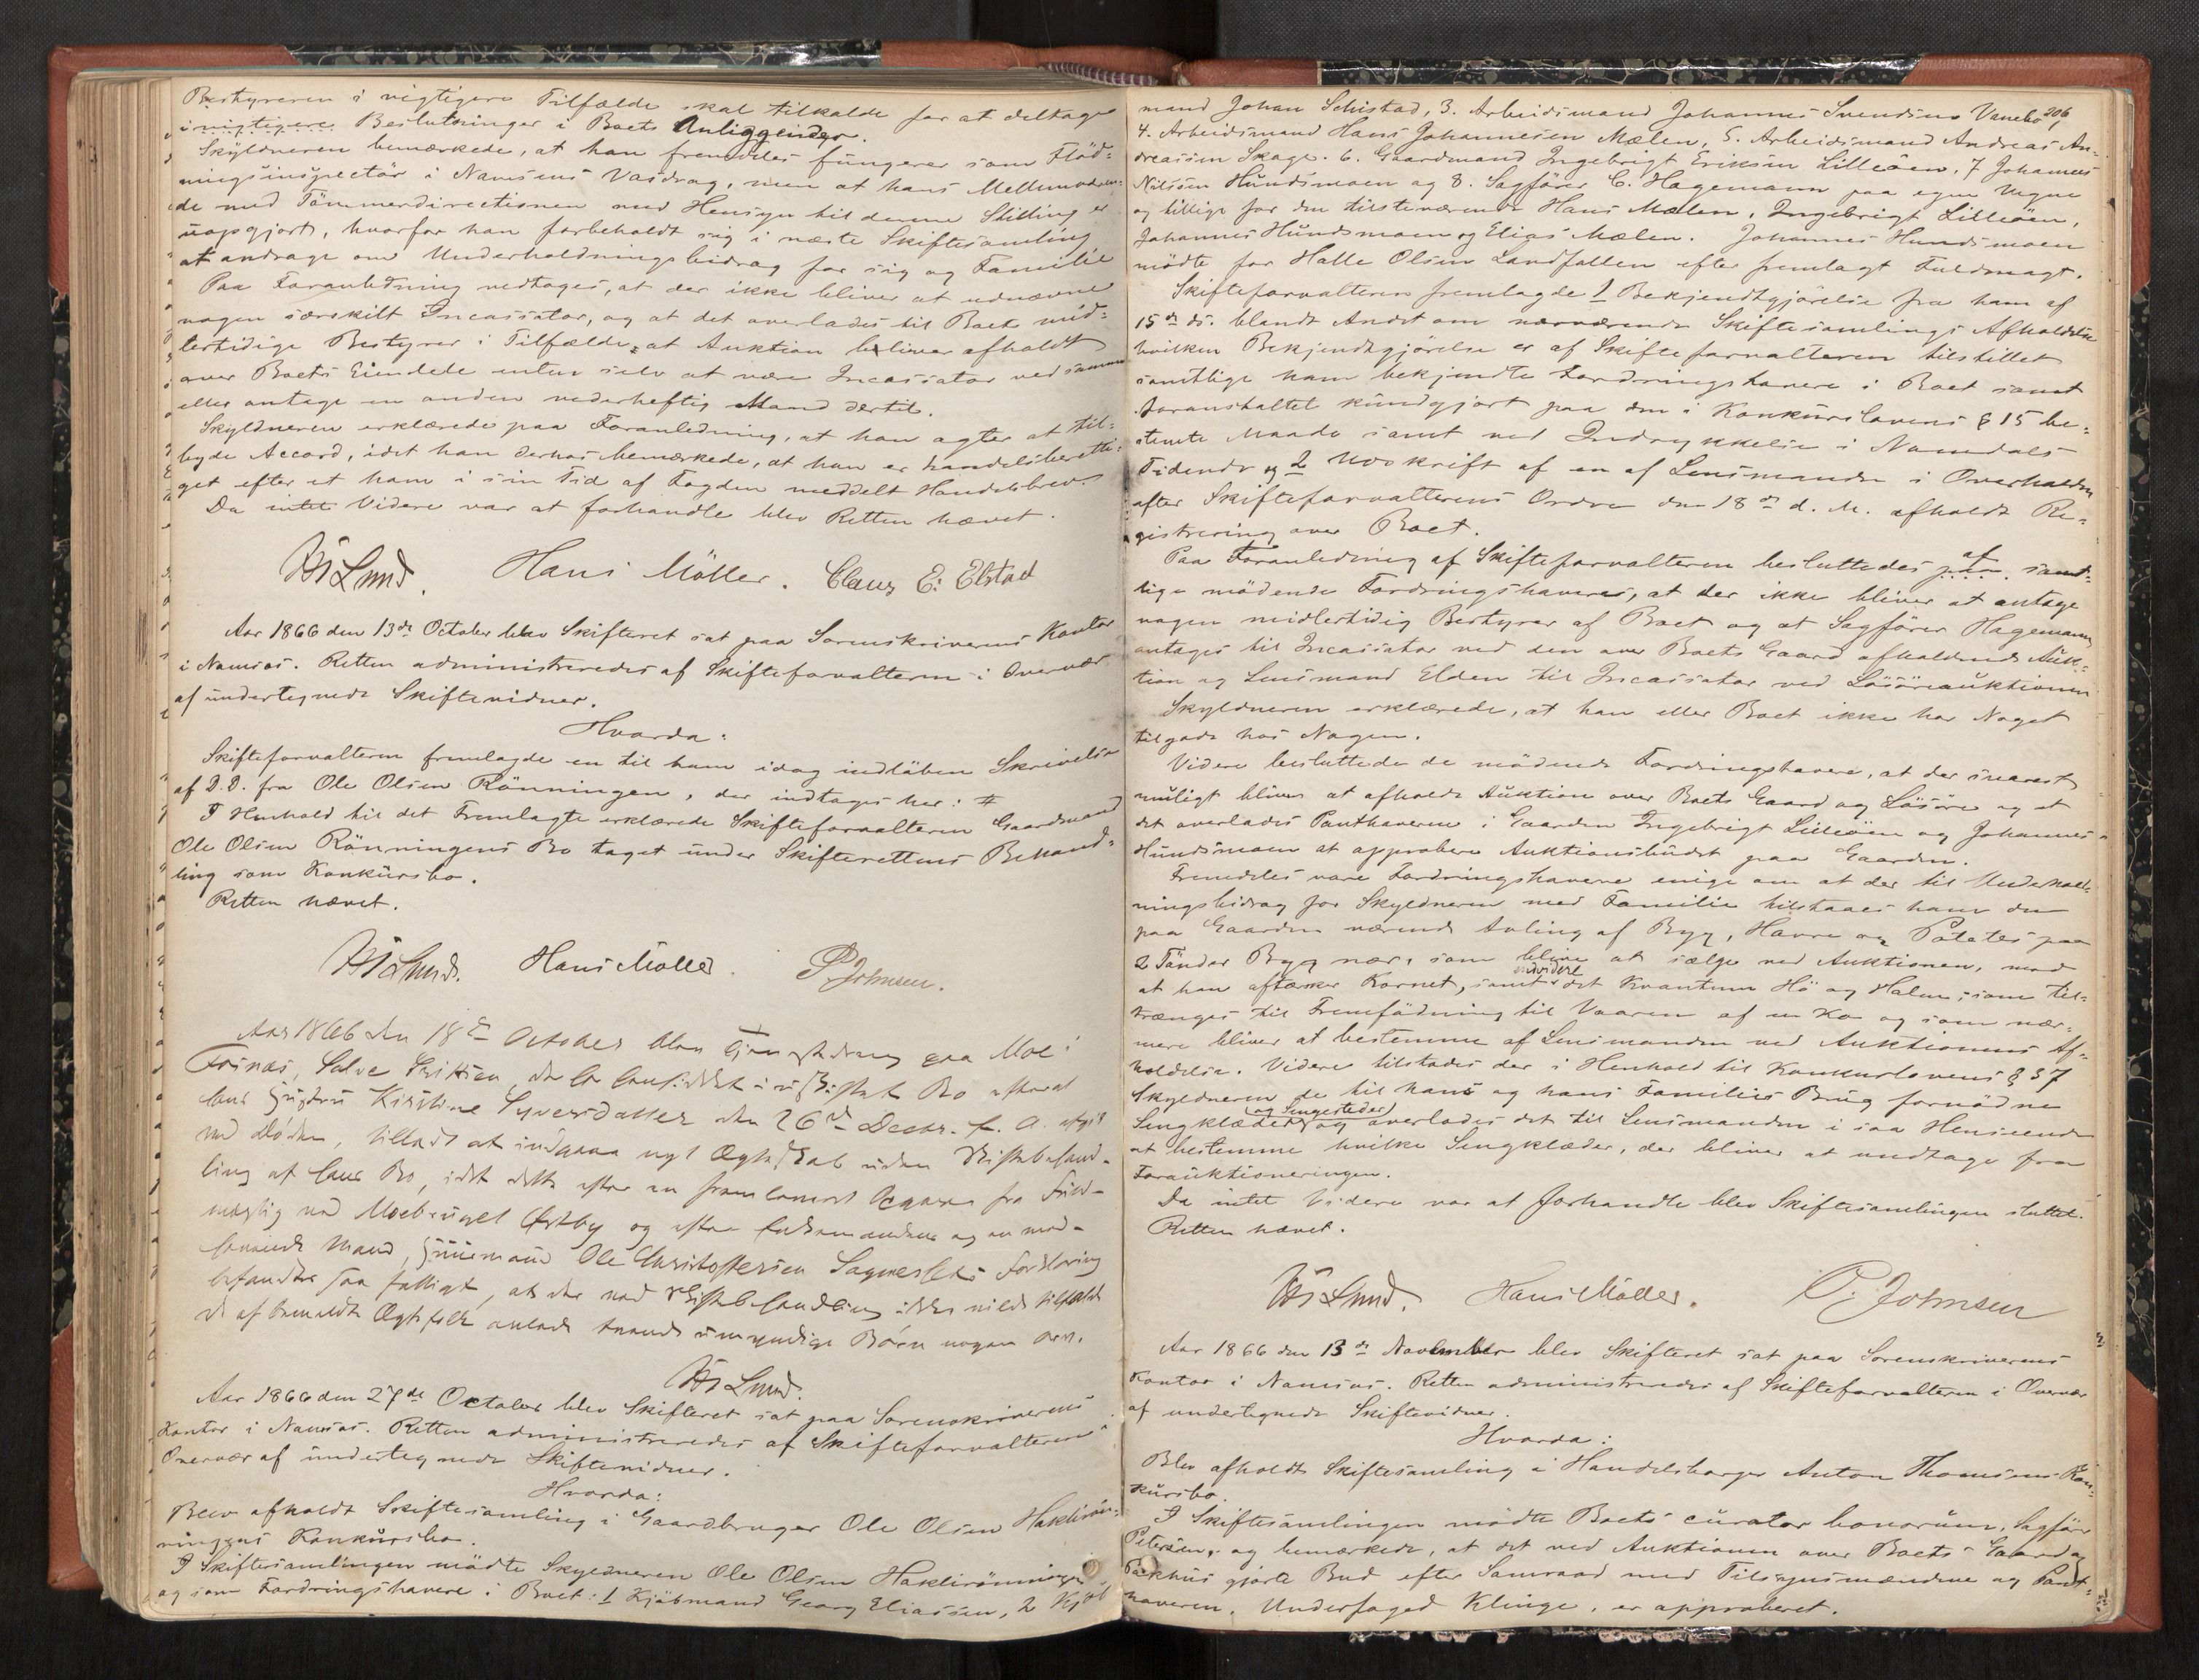 Bestyreren i vigtigere Tilfælde skal tilkalde for at deltage
i vigtigere Beslutninger i Boets Anliggender.
Skyldneren bemærkede, at han fremdeles fungerer som Flød-
ningsinspectør i Namsens Vasdrag, men at hans Mellemværen-
de med Tømmerdirectionen med Hensyn til denne Stilling er
uopgjort, hvorfor han forbeholdt sig i næste Skiftesamling
at andrage om Underholdningsbidrag for sig og Familie
Paa Foranledning vedtoges, at der ikke bliver at udnævne
nogen særskilt Incassator, og at det overlades til Boets mid-
lertidige Bestyrer i Tilfælde, at Auktion bliver afholdt
over Boets Eiendele enten selv at være Incassator ved samme
eller antage en anden vederheftig Mand dertil.
Skyldneren erklærede paa Foranledning, at han agter at til-
byde Accord, idet han derhos bemærkede, at han er handelsberetti-
get efter et ham i sin Tid af Fogden meddelt Handelsbrev.
Da intet Videre var at forhandle blev Retten hævet.
Lund. Hans Møller. Claus E. Elstad
Aar 1866 den 13de October blev Skifteret sat paa Sorenskriverens Kontor
i Namsos. Retten administreredes af Skifteforvalteren i Overvær
af undertegnede Skiftevidner.
Hvorda:
Skifteforvalteren fremlagde en til ham idag indløben Skrivelse
af D.D. fra Ole Olsen Rønningen, der indtages her: #
I Henhold til det Fremlagte erklærede Skifteforvalteren Gaardmand
Ole Olsen Rønningens Bo taget under Skifterettens Behand-
ling som Konkursbo.
Retten hævet.
Lund. Hans Møller. P. Johnsen.
Aar 1866 den 18de October blev Gjæstgiver paa Moe i
Fosnæs,
Hustru Kirstine Syversdatter den 26de Decbr. f. A.
ved Døden, tilladt at indgaa nyt Ægteskab uden Skiftebehand-
ling af hans Bo, idet dette efter en fremkommet Opgave fra Fuld-
mægtig ved Moebruget Østby og efter Enkemandens og en med-
havende Mand, Huusmand Ole Christophersen Forklaring
befandtes saa fattigt, at der ved Skiftebehandling ikke vilde tilfalde
de af bemeldte Ægtefolk avlede umyndige Børn nogen Arv.
Lund.
Aar 1866 den 27de October blev Skifteret sat paa Sorenskriverens
Kontor i Namsos. Retten administreredes af Skifteforvalteren i
Overvær af undertegnede Skiftevidner.
Hvorda:
Blev afholdt Skiftesamling i Gaardbruger Ole Olsen Haklirøn-
ningens Konkursbo.
I Skiftesamlingen mødte Skyldneren Ole Olsen Haklirønningen
og som Fordringshavere i Boet: 1 Kjøbmand Georg Eliassen, 2 Kjøb
206
mand Johan Schistad, 3. Arbeidsmand Johannes Svendsen Vanebo
4. Arbeidsmand Hans Johannesen Mælen, 5. Arbeidsmand Andreas An-
dreassen Skage. 6. Gaardmand Ingebrigt Eriksen Lilleøen. 7 Johannes
Nilssen Hundsmoen og 8. Sagfører C. Hagemann paa egne Vegne
og tillige for den tilstedeværende Hans Mælen, Ingebrigt Lilleøen,
Johannes Hundsmoen og Elias Mælen. Johannes Hundsmoen
mødte for Halle Olsen Landfallen efter fremlagt Fuldmagt.
Skifteforvalteren fremlagde 1 Bekjendtgjørelse fra ham af
15de ds. blandt Andet om nærværende Skiftesamlings Afholdelse
hvilken Bekjendtgjørelse er af Skifteforvalteren tilstillet
samtlige ham bekjendte Fordringshavere i Boet samt
foranstaltet kundgjort paa den i Konkurslovens § 15 be-
stemte Maade samt ved Indrykkelse i Namdals
Tidende og 2 Udskrift af en af Lensmanden i Overhalden
efter Skifteforvalterens Ordre den 18de d. M. afholdt Re-
gistrering over Boet.
Paa Foranledning af Skifteforvalteren besluttedes paa af samt-
lige mødende Fordringshavere, at der ikke bliver at antage
nogen midlertidig Bestyrer af Boet og at Sagfører Hagemann
antages til Incassator ved den over Boets Gaard afholdende Auk-
tion og Lensmand Elden til Incassator ved Løsøreauktionen
Skyldneren erklærede, at han eller Boet ikke har Noget
tilgode hos Nogen.
Videre besluttede de mødende Fordringshavere, at der snarest
muligt bliver at afholde Auktion over Boets Gaard og Løsøre og at
det overlades Panthaverne i Gaarden Ingebrigt Lilleøen og Johannes
Hundsmoen at approbere Auktionsbudet paa Gaarden.
Fremdeles vare Fordringshaverne enige om at der til Underhold-
ningsbidrag for Skyldneren med Familie tilstaaes ham den
paa Gaarden værende Avling af Byg, Havre og Potetes paa
2 Tønder Byg nær, som bliver at sælge ved Auktionen, mod
at han aftærsker Kornet, samt endvidere det Kvantum Hø og Halm, som til-
trænges til Fremfødning til Vaaren af en Ko og som nær-
mere bliver at bestemme af Lensmanden ved Auktionens Af-
holdelse. Videre tilstodes der i Henhold til Konkurslovens § 37
Skyldneren de til hans og hans Families Brug fornødne
Sengklæder (og Sengesteder) og overlades det til Lensmanden i saa Henseende
at bestemme hvilke Sengklæder, der bliver at undtage fra
Forauktioneringen.
Da intet Videre var at forhandle blev Skiftesamlingen sluttet.
Retten hævet.
Lund. Hans Møller. P. Johnsen
Aar 1866 den 13de November blev Skifteret sat paa Sorenskriverens
Kontor i Namsos. Retten administreredes af Skifteforvalteren i Overvær
af undertegnede Skiftevidner.
Hvorda:
Blev afholdt Skiftesamling i Handelsborger Anton Thomsens Kon-
kursbo.
I Skiftesamlingen mødte Boets curator bonorum, Sagfører
Petersen, og bemærkede, at det ved Auktionen over Boets Gaard og
Pakhus gjorte Bud efter Samraad med Tilsynsmændene og Pant-
haveren, Underfoged Klinge, er approberet.